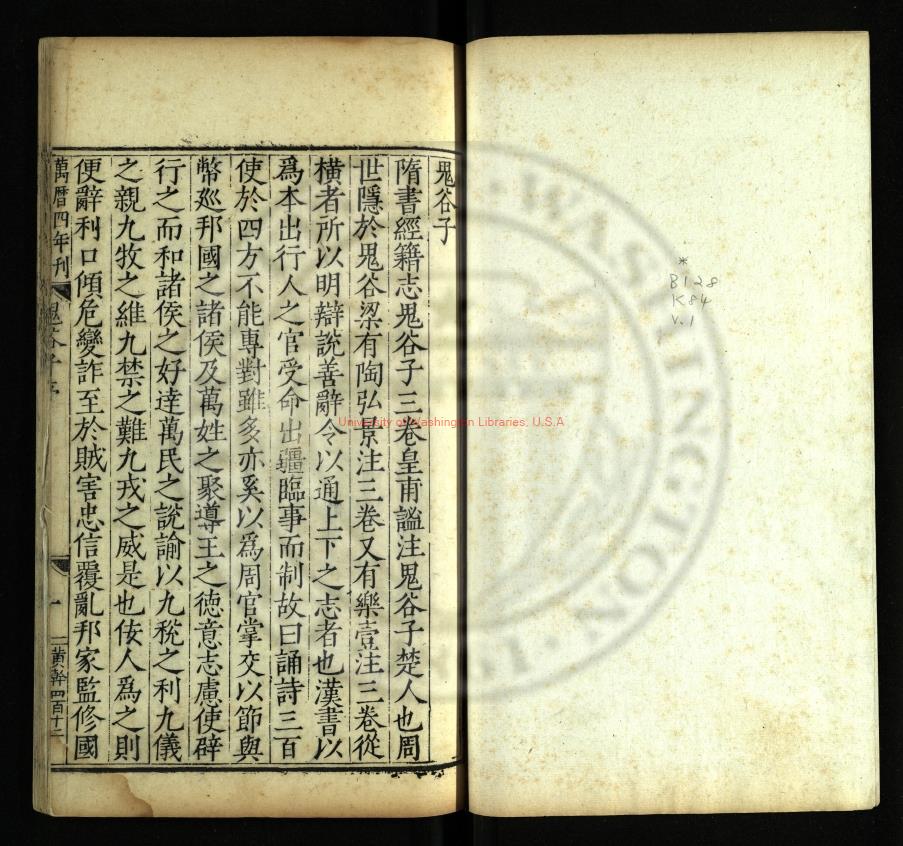 鬼谷子
隋書經籍志鬼谷子三卷皇甫謐注鬼谷子楚人也周
世隱於鬼谷梁有陶弘景注三卷又有樂壹注三卷從
橫者所以明辯說善辭令以通上下之志者也漢書以
爲本出行人之官受命出疆臨事而制故曰誦詩三百
使於四方不能專對雖多亦奚以爲周官掌交以節與
幣廵邦國之諸侯及萬姓之聚導王之德意志慮使辟
行之而和諸侯之好逹萬民之說諭以九稅之利九儀
之親九牧之維九禁之難九戎之威是也佞人爲之則
便辭利口傾危變詐至於賊害忠信覆亂邦家監修國
萬曆四年刊 鬼谷子 一 黄幹四百十二
*
B128
K84
v.1
University of Washington Libraries, U.S.A
WASHINGTON